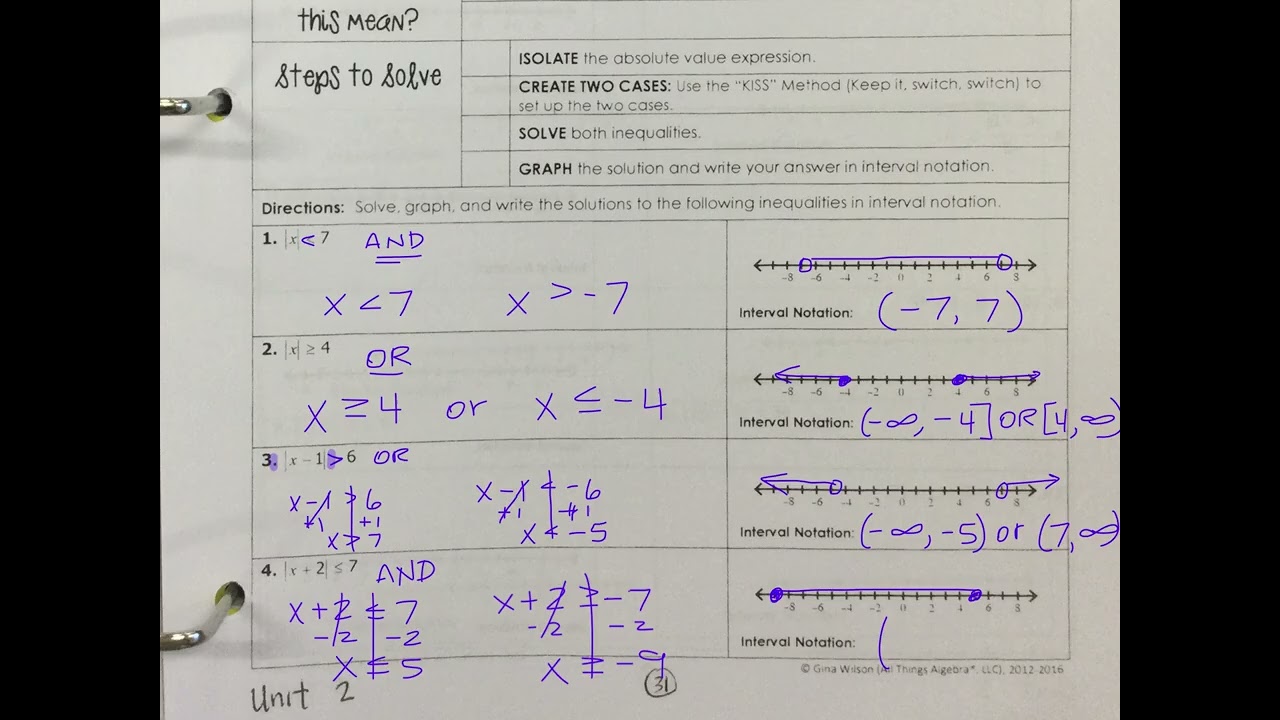 this MEAN?
Steps to Solve
ISOLATE the absolute value expression.
CREATE TWO CASES: Use the "KISS" Method (Keep it, switch, switch) to
set up the two cases.
SOLVE both inequalities.
GRAPH the solution and write your answer in interval notation.
Directions: Solve, graph, and write the solutions to the following inequalities in interval notation.
1. |x| < 7 AND
x < 7 x > -7
-8 -6 -4 -2 0 2 4 6 8
Interval Notation: (-7, 7)
2. |x| ≥ 4 OR
x ≥ 4 or x ≤ -4
-8 -6 -4 -2 0 2 4 6 8
Interval Notation: (-∞, -4] OR [4, ∞)
3. |x - 1| > 6 OR
x - 1 > 6 x - 1 < -6
+1 +1 +1 +1
x > 7 x < -5
-8 -6 -4 -2 0 2 4 6 8
Interval Notation: (-∞, -5) or (7, ∞)
4. |x + 2| ≤ 7 AND
x + 2 ≤ 7 x + 2 ≥ -7
-2 -2 -2 -2
x ≤ 5 x ≥ -9
-8 -6 -4 -2 0 2 4 6 8
Interval Notation: (
© Gina Wilson (All Things Algebra®, LLC), 2012-2016
Unit 2
31